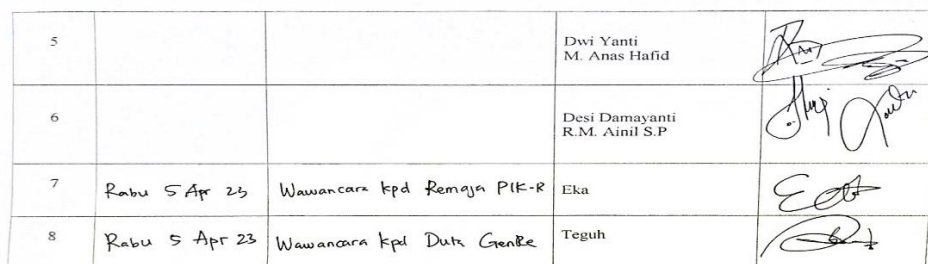 5 Dwi Yanti
M. Anas Hafid
6 Desi Damayanti
R.M. Ainil S.P
7 Rabu 5 Apr 23 Wawancara kpd Remaja PIK-R Eka
8 Rabu 5 Apr 23 Wawancara kpd Duta GenRe Teguh